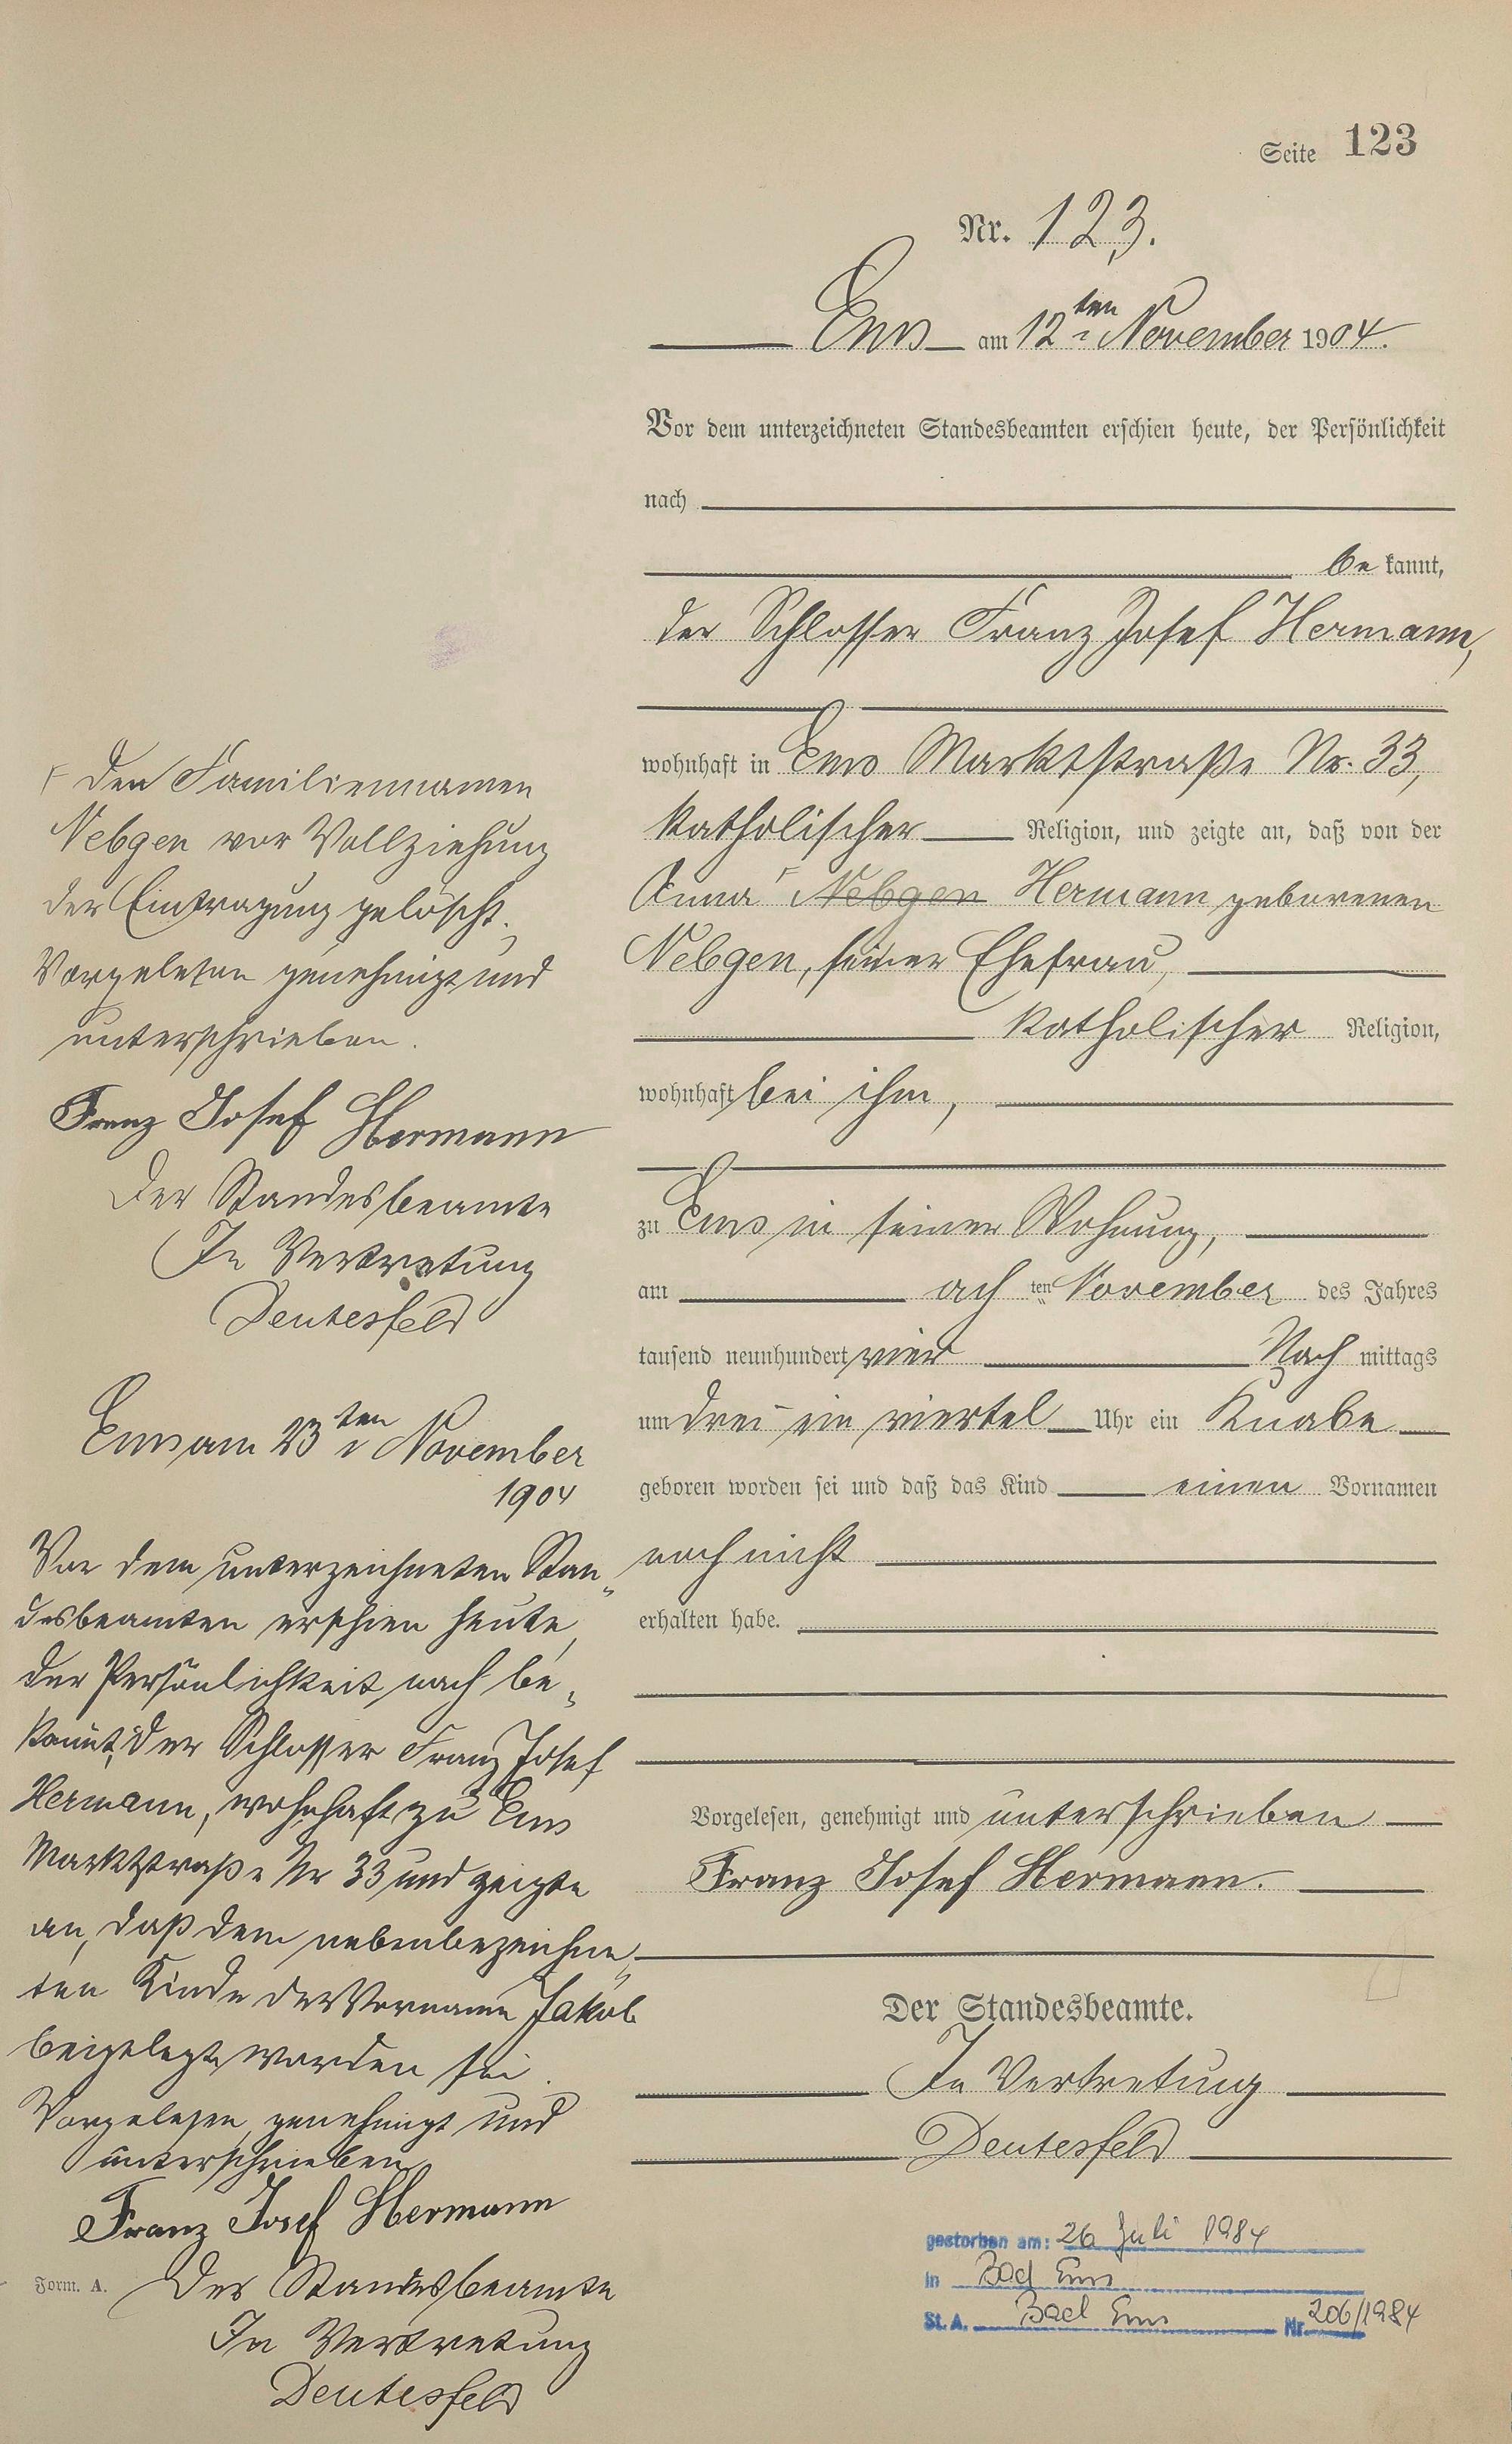 Seite 123
Nr. 123.
Ems am 12ten November 1904.
Vor dem unterzeichneten Standesbeamten erschien heute, der Persönlichkeit
nach
be kannt,
der Schlosser Franz Josef Hermann,
wohnhaft in Ems Marktstraße Nr. 33,
katholischer Religion, und zeigte an, daß von der
Anna ⊢ Nebgen Hermann geborenen
Nebgen, seiner Ehefrau,
katholischer Religion,
wohnhaft bei ihm,
zu Ems in seiner Wohnung,
am ach ten November des Jahres
tausend neunhundert vier Nach mittags
um drei ein viertel Uhr ein Knabe
geboren worden sei und daß das Kind einen Vornamen
noch nicht
erhalten habe.
Vorgelesen, genehmigt und unterschrieben
Franz Josef Hermann.
Der Standesbeamte.
In Vertretung
Deutesfeld
⊢ den Familiennamen
Nebgen vor Vollziehung
der Eintragung gelöscht.
Vorgelesen genehmigt und
unterschrieben.
Franz Josef Hermann
Der Standesbeamte
In Vertretung
Deutesfeld
Ems am 23ten November
1904
Vor dem unterzeichneten Stan„
desbeamten erschien heute,
der Persönlichkeit nach be„
kannt, der Schlosser Franz Josef
Hermann, wohnhaft zu Ems
Marktstraße Nr 33 und zeigte
an, daß dem nebenbezeichne„
ten Kinde der Vorname Jakob
beigelegt worden sei.
Vorgelesen, genehmigt und
unterschrieben
Franz Josef Hermann
Der Standesbeamte
In Vertretung
Deutesfeld
Form. A.
gestorben am: 26 Juli 1984
in Bad Ems
St. A. Bad Ems Nr. 206/1984